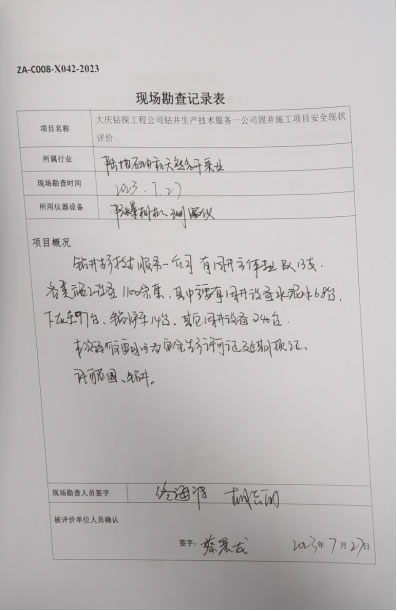 ZA-C008-X042-2023
现场勘查记录表
项目名称 大庆钻探工程公司钻井生产技术服务一公司固井施工项目安全现状
评价
所属行业 陆地石油和天然气开采业
现场勘查时间 2023.7.27
所用仪器设备 防爆相机、测距仪
项目概况
钻井生产技术服务一公司有固井主体专业队13支,
各类施工设备1100余集,其中主要有固井设备水泥车68台,
下灰车97台、14台、其它固井设备240台.
本次评价目的为安全生产许可证延期换证。
许可范围、钻井。
现场勘查人员签字
被评价单位人员确认
签字: 2023年7月27日